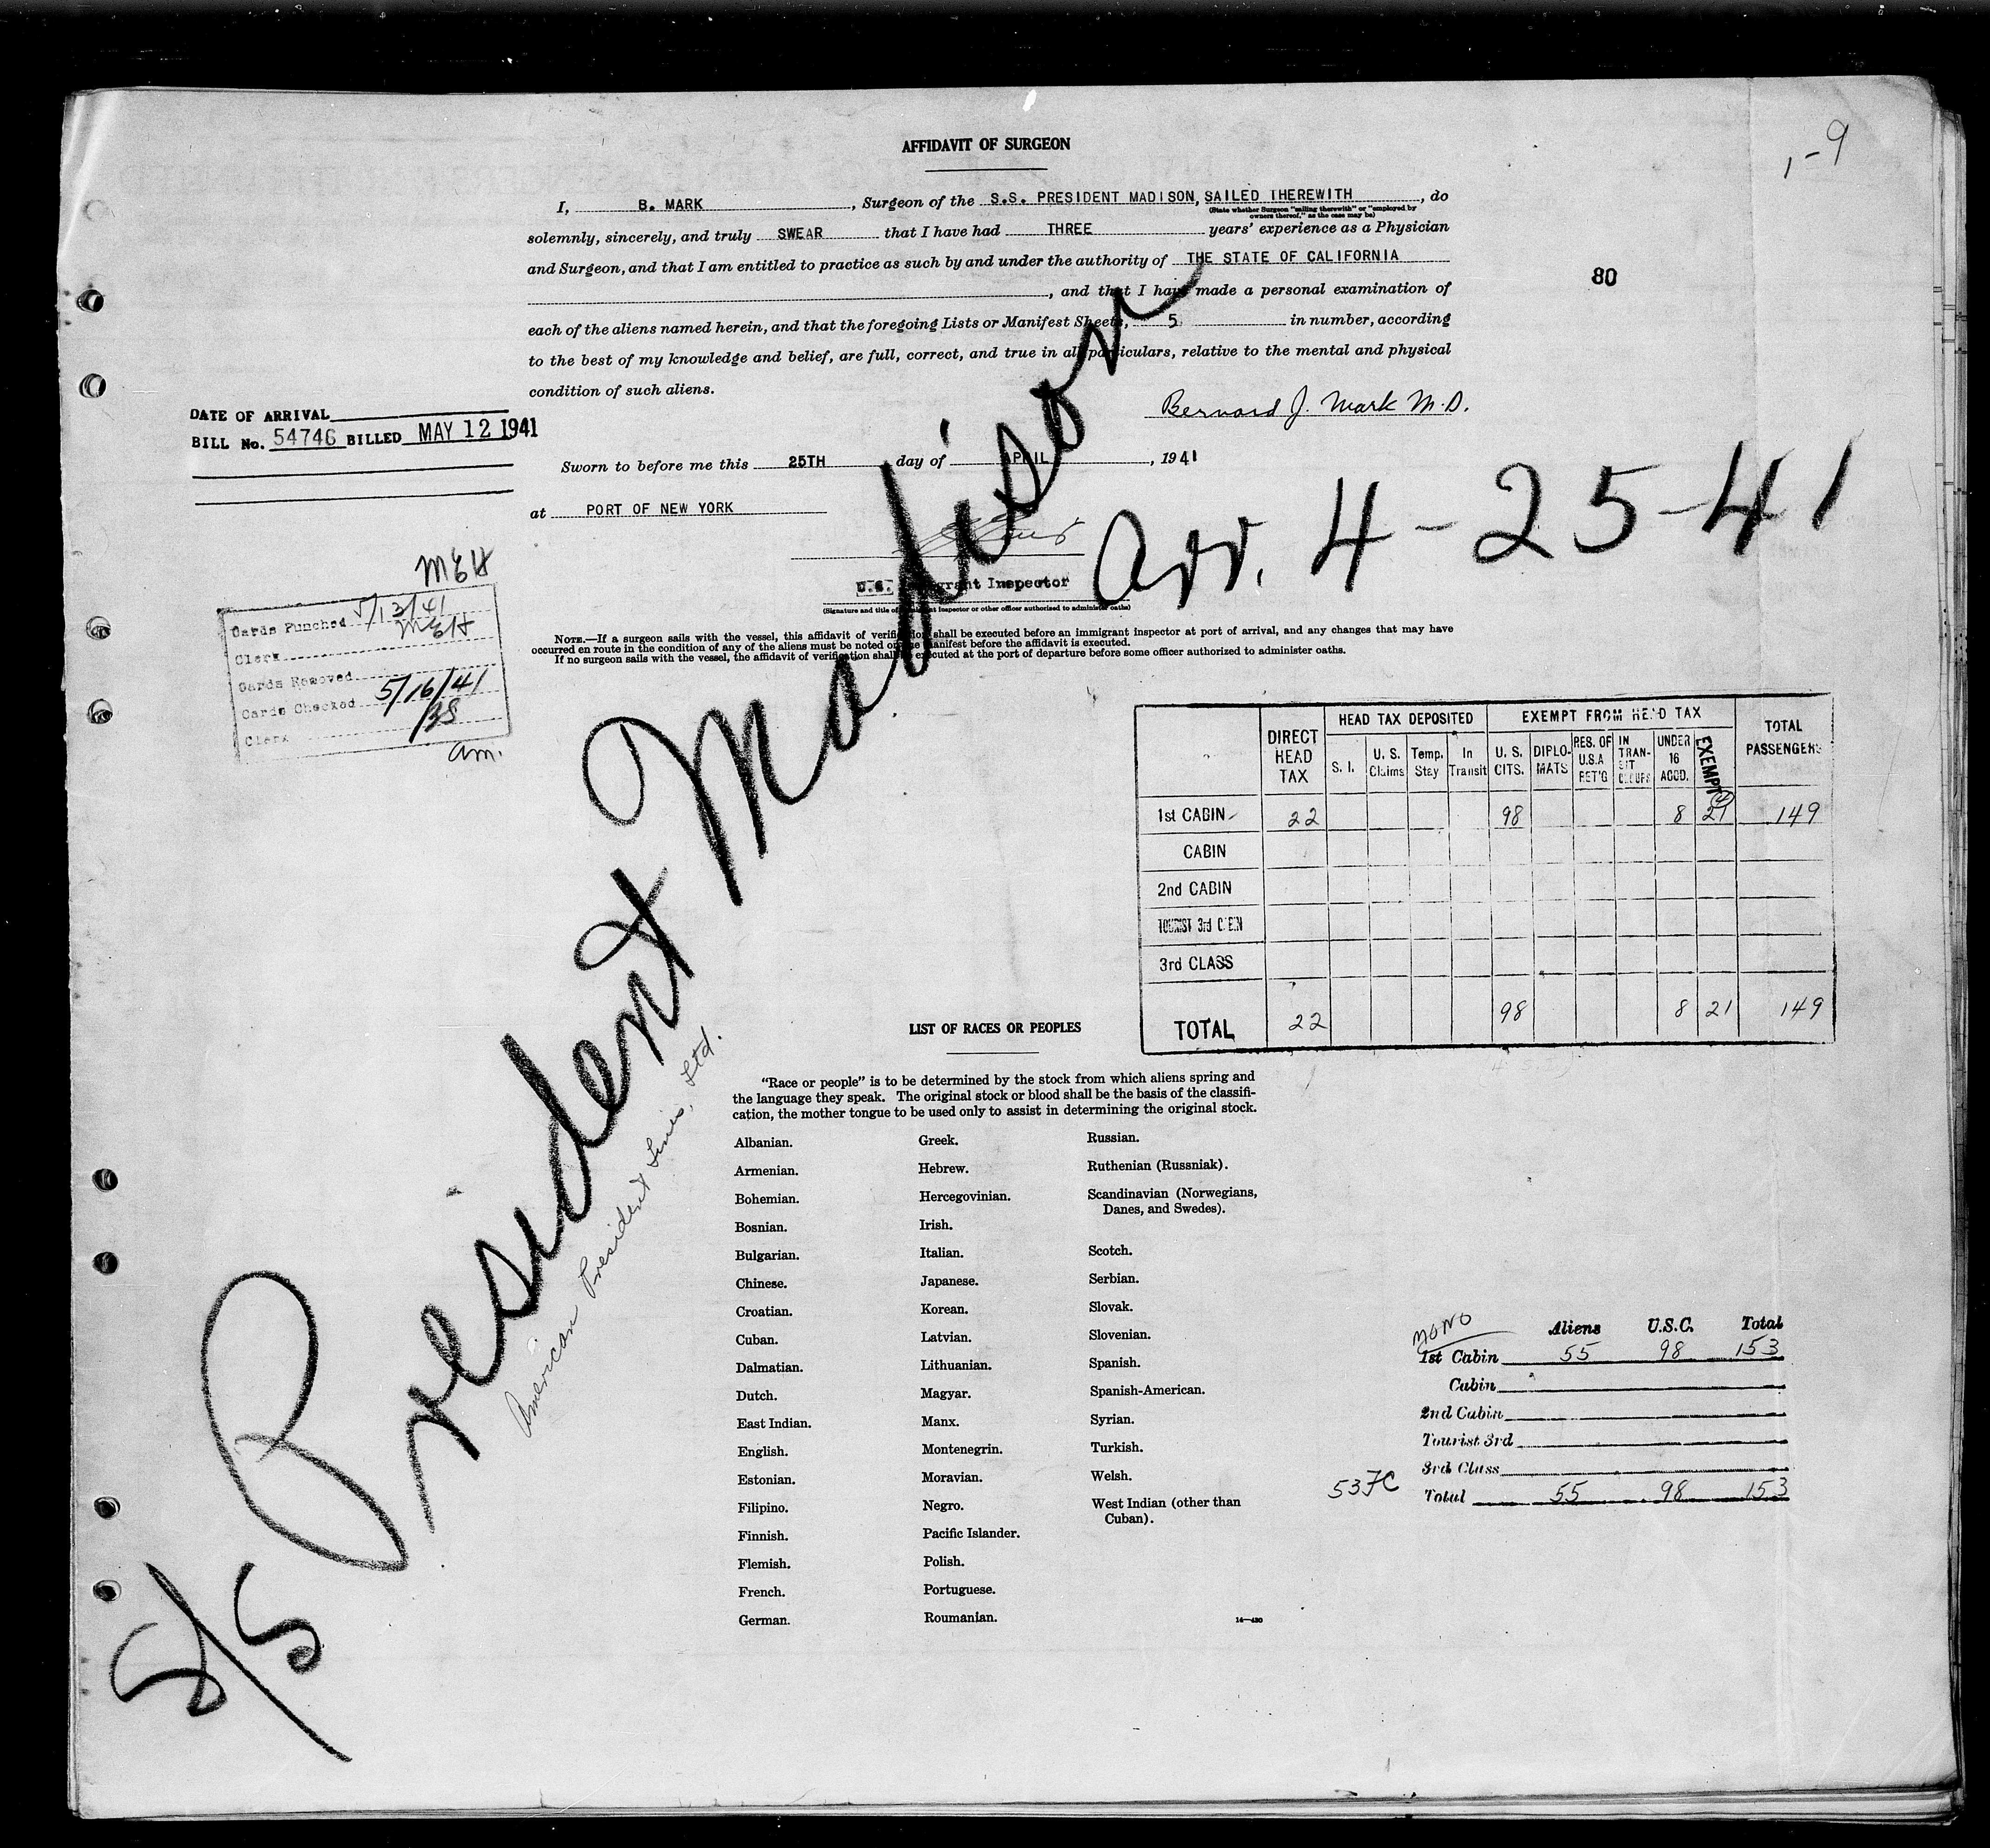 AFFIDAVIT OF SURGEON
1-9
I, B. MARK, Surgeon of the S.S. PRESIDENT MADISON, SAILED THEREWITH, do
(State whether Surgeon "sailing therewith" or "employed by
owners thereof," as the case may be)
solemnly, sincerely, and truly SWEAR that I have had THREE years' experience as a Physician
and Surgeon, and that I am entitled to practice as such by and under the authority of THE STATE OF CALIFORNIA
80
, and that I have made a personal examination of
each of the aliens named herein, and that the foregoing Lists or Manifest Sheets, 5 in number, according
to the best of my knowledge and belief, are full, correct, and true in all particulars, relative to the mental and physical
condition of such aliens.
Bernard J. Mark M.D.
DATE OF ARRIVAL
BILL No. 54746 BILLED MAY 12 1941
Sworn to before me this 25TH day of APRIL, 1941
at PORT OF NEW YORK
Arr. 4-25-41
U.S. Immigrant Inspector
(Signature and title of immigrant inspector or other officer authorized to administer oaths)
MEH
Cards Punched 5/13/41
Clerk MEH
Cards Removed
Cards Checked 5/16/41
Clerk
am.
NOTE.—If a surgeon sails with the vessel, this affidavit of verification shall be executed before an immigrant inspector at port of arrival, and any changes that may have
occurred en route in the condition of any of the aliens must be noted on the manifest before the affidavit is executed.
If no surgeon sails with the vessel, the affidavit of verification shall be executed at the port of departure before some officer authorized to administer oaths.
S/S President Madison
American President Lines, Ltd.
DIRECT HEAD TAX HEAD TAX DEPOSITED EXEMPT FROM HEAD TAX TOTAL PASSENGERS
S. I. U. S. Claims Temp. Stay In Transit U. S. CITS. DIPLOMATS RES. OF U.S.A RET'G IN TRANSIT UNDER 16 ACCD. EXEMPT
1st CABIN 22 98 8 21 149
CABIN
2nd CABIN
TOURIST 3rd CABIN
3rd CLASS
TOTAL 22 98 8 21 149
LIST OF RACES OR PEOPLES
"Race or people" is to be determined by the stock from which aliens spring and
the language they speak. The original stock or blood shall be the basis of the classifi-
cation, the mother tongue to be used only to assist in determining the original stock.
Albanian.
Armenian.
Bohemian.
Bosnian.
Bulgarian.
Chinese.
Croatian.
Cuban.
Dalmatian.
Dutch.
East Indian.
English.
Estonian.
Filipino.
Finnish.
Flemish.
French.
German.
Greek.
Hebrew.
Hercegovinian.
Irish.
Italian.
Japanese.
Korean.
Latvian.
Lithuanian.
Magyar.
Manx.
Montenegrin.
Moravian.
Negro.
Pacific Islander.
Polish.
Portuguese.
Roumanian.
Russian.
Ruthenian (Russniak).
Scandinavian (Norwegians,
Danes, and Swedes).
Scotch.
Serbian.
Slovak.
Slovenian.
Spanish.
Spanish-American.
Syrian.
Turkish.
Welsh.
West Indian (other than
Cuban).
14—430
MONO
Aliens U.S.C. Total
1st Cabin 55 98 153
Cabin
2nd Cabin
Tourist 3rd
3rd Class
Total 55 98 153